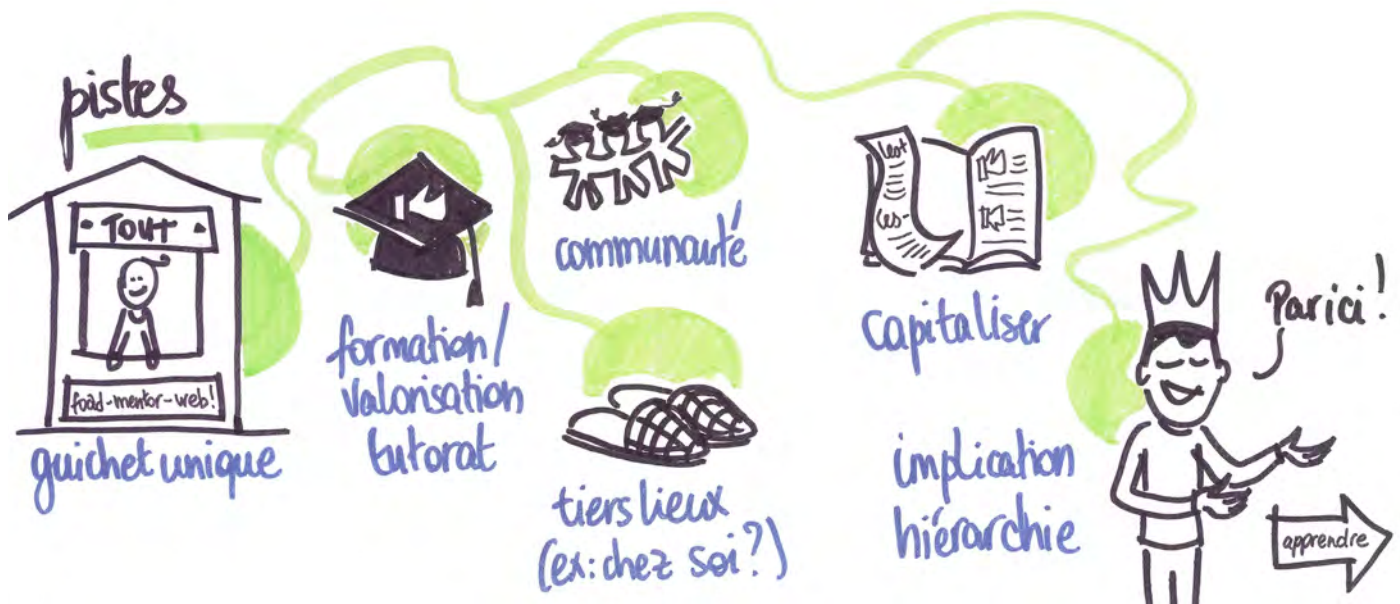 pistes
• TOUT •
foad-mentor-web!
guichet unique
formation/
valorisation
tutorat
communauté
tiers lieux
(ex: chez soi?)
les +
les -
capitaliser
implication
hiérarchie
Par ici!
apprendre